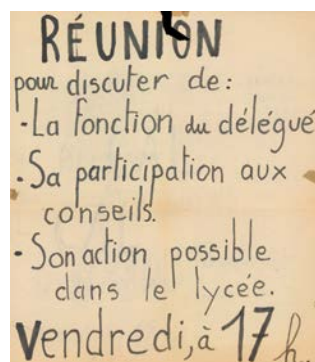 RÉUNION
pour discuter de:
-La fonction du délégué
-Sa participation aux
conseils.
-Son action possible
dans le lycée.
Vendredi, à 17 h..